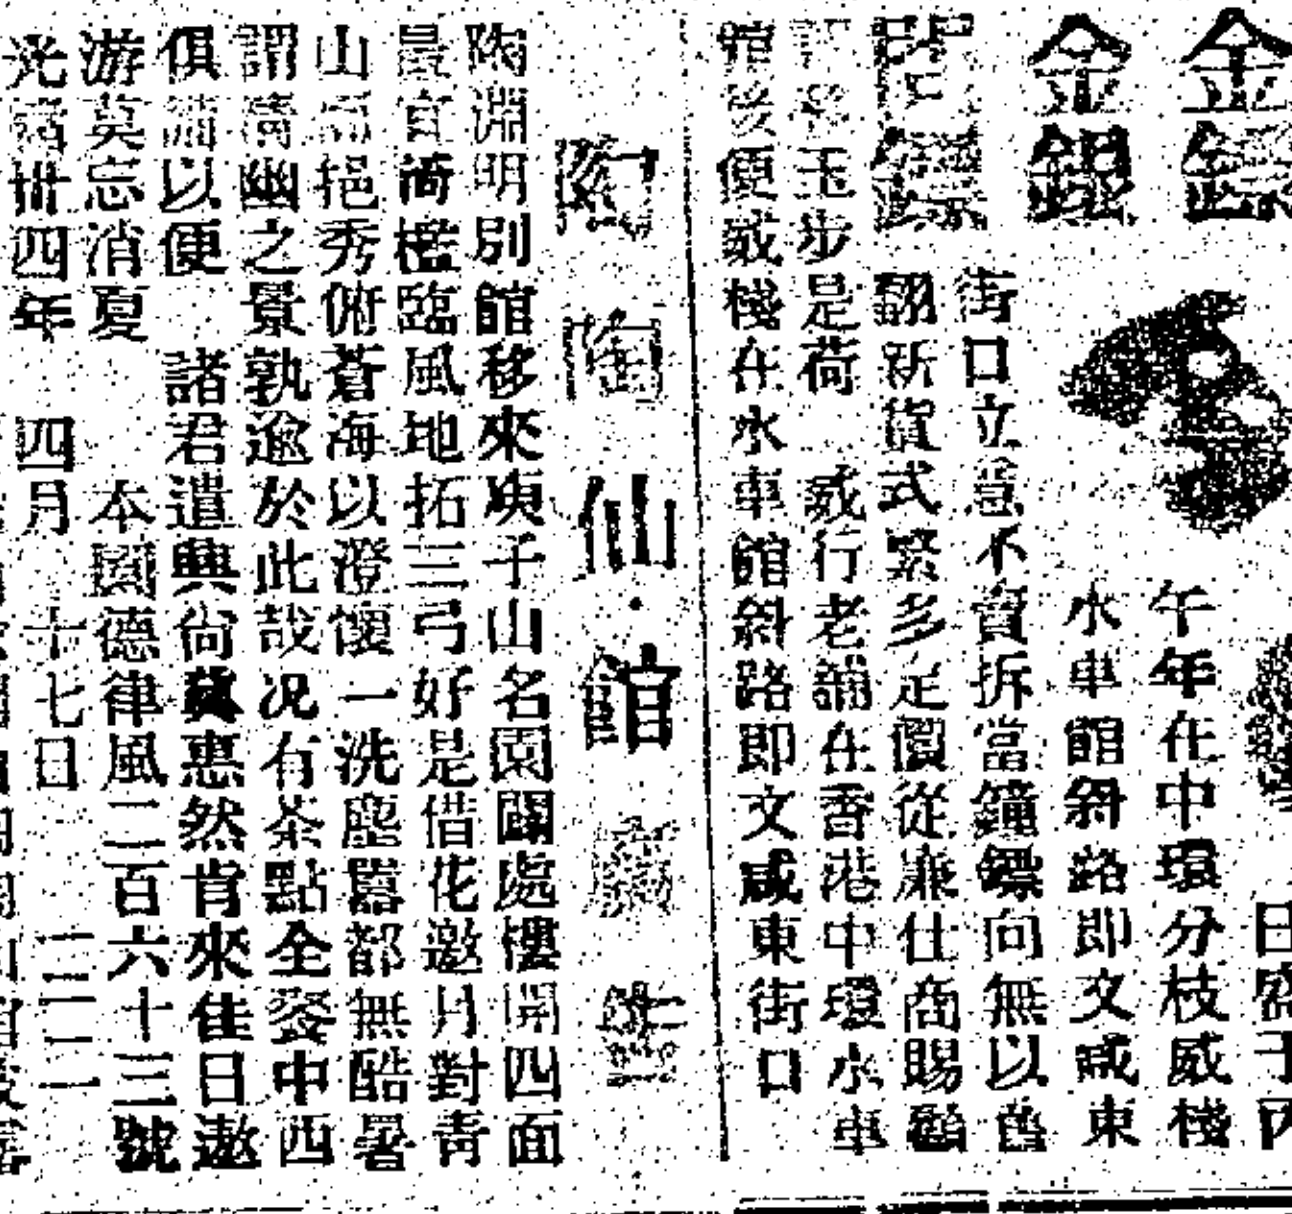 金鏢
金銀
日盛于丙
午年在中環分枝威棧
水車館斜路即文咸東
街口立意不賣拆當鐘鏢向無以魯
鏢
翻新貨式繁多足價從廉仕商賜顧
玉步是荷 威行老舖在香港中環水車
館後便威棧在水車館斜路即文咸東街口
陶陶仙館
陶淵明別館移來庾千山名園闢處樓開四面
最宜倚檻臨風地拓三弓好是借花邀月對青
山而挹秀俯蒼海以澄懷一洗塵囂都無酷暑
謂清幽之景孰逾於此哉况有茶點全餐中西
俱備以便 諸君遣興尚冀惠然肯來佳日遨
游莫忘消夏 本園德律風二百六十三號
光緒卅四年 四月 十七日